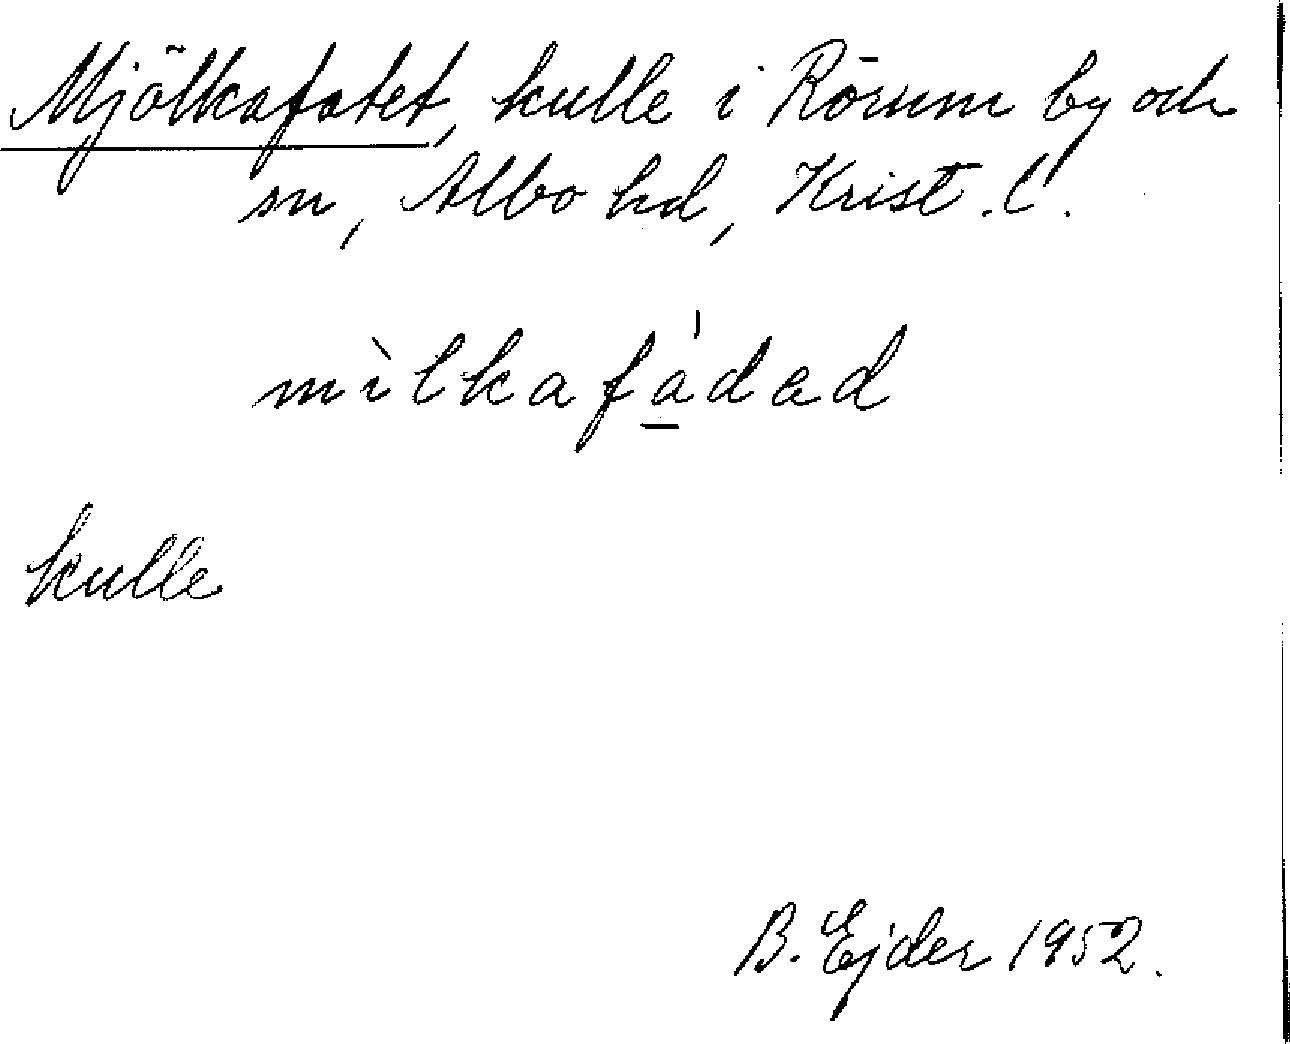 Mjölkafatet, kulle i Rörum by och
sn, Albo hd, Krist. l.
mìlkafàdad
kulle
B. Ejder 1952.